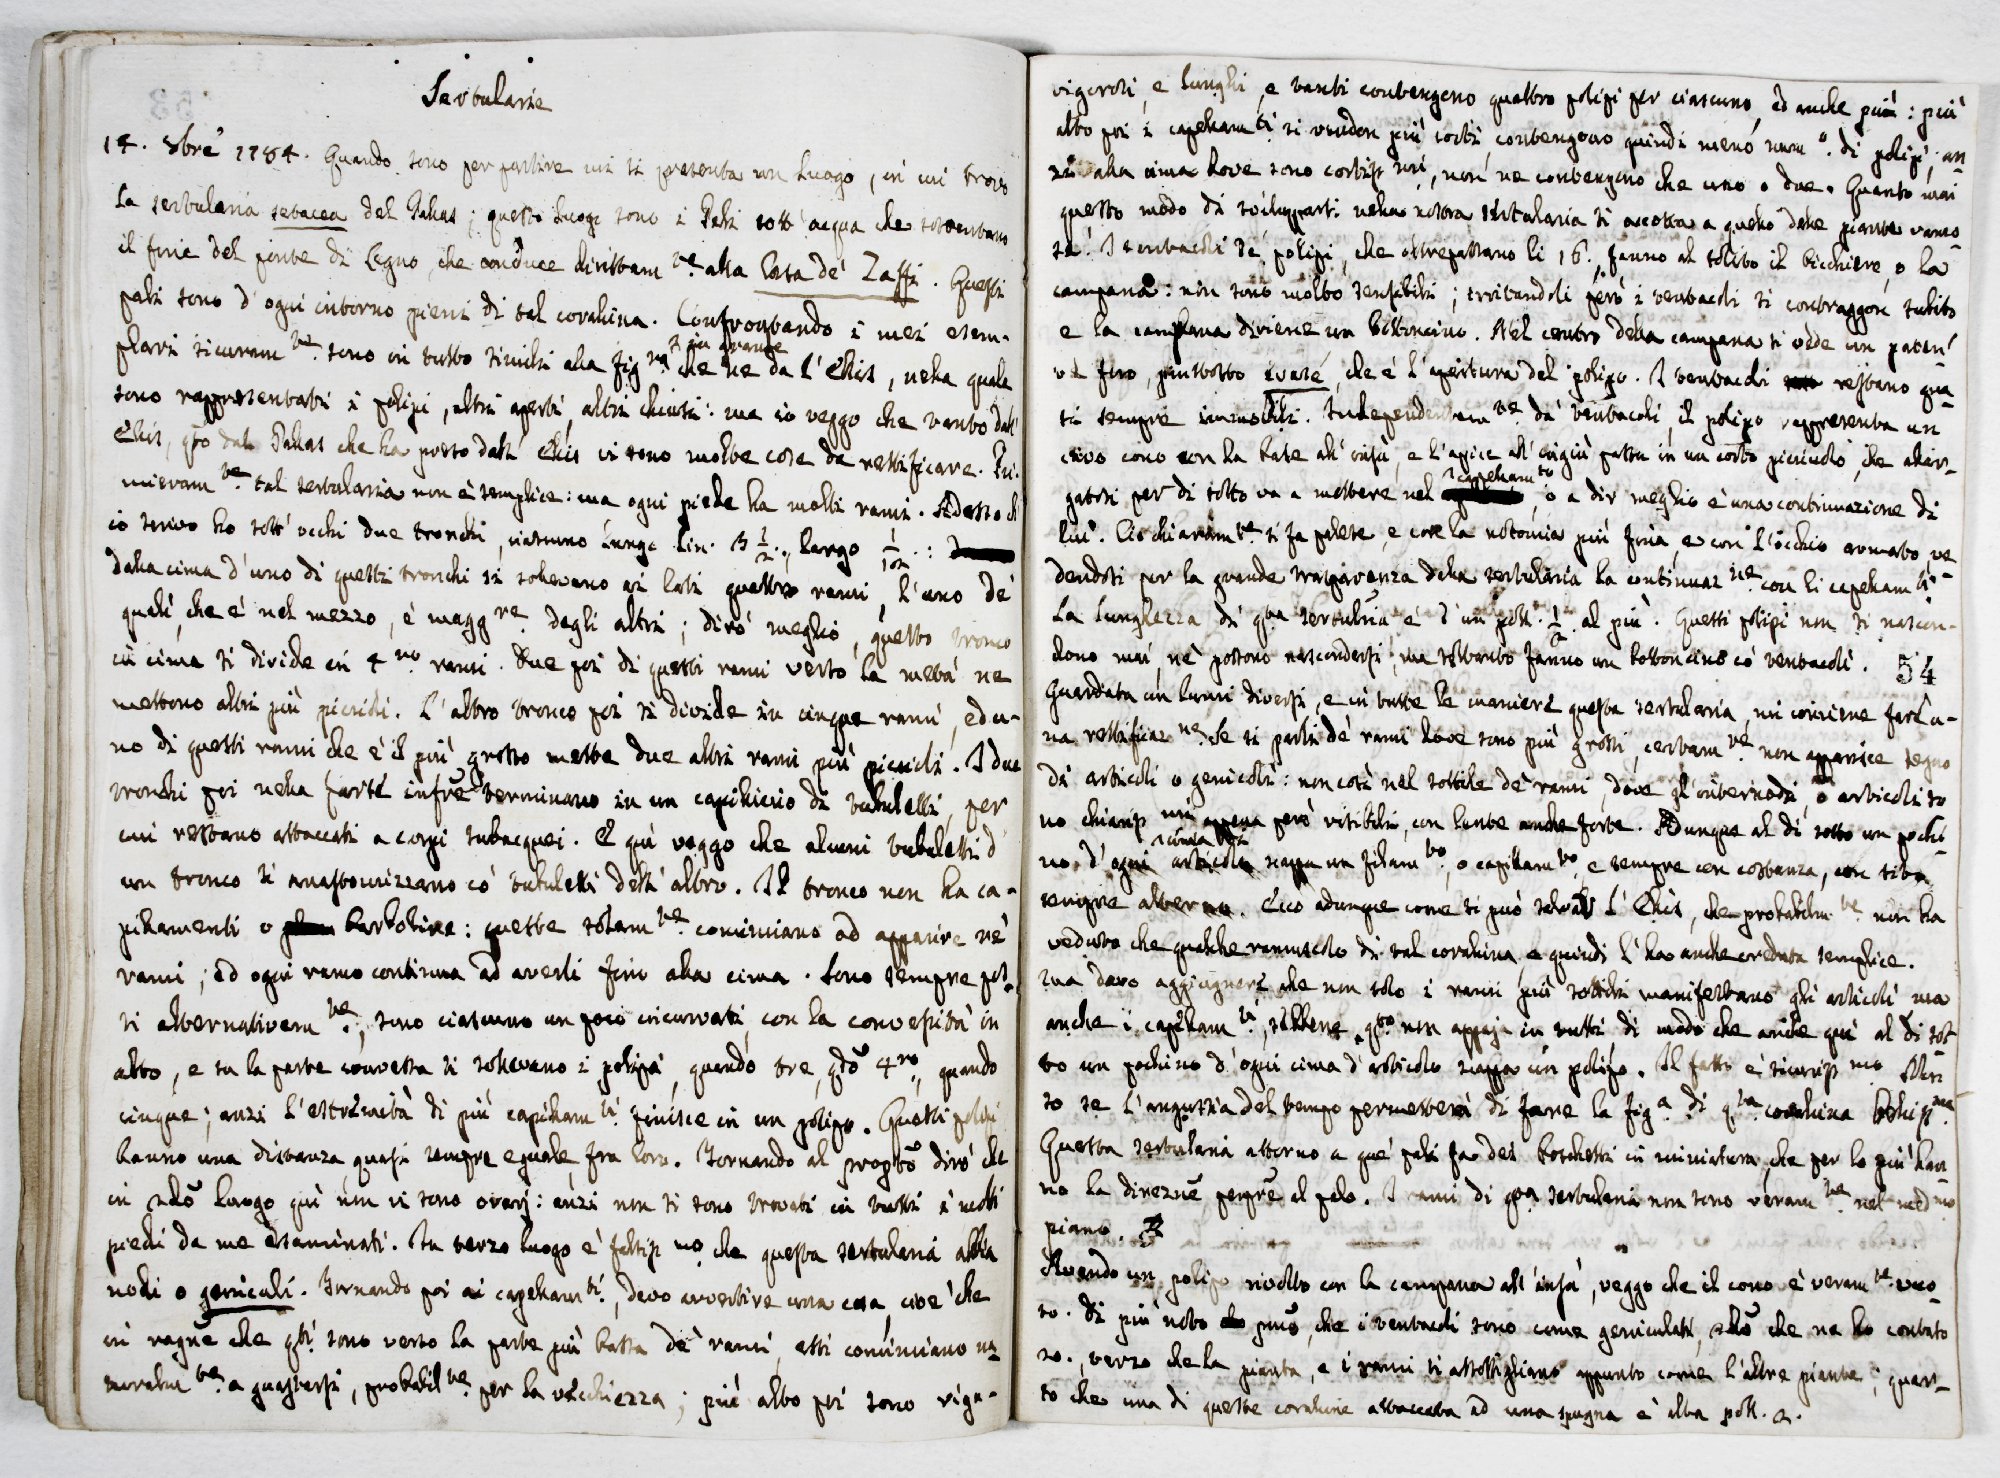 Sertularie
14. 8bre 1784. Quando sono per partire mi si presenta un luogo, in cui trovo
la sertularia setacea del Pallas; questo luogo sono i Pali sott'acqua che sostentano
il fine del ponte di Legno, che conduce dirittam.te alla Casa de' Zaffi. Questi
pali sono d'ogni intorno pieni di tal corallina. Confrontando i miei esem-
plari sicuram.te sono in tutto simili alla fig.ra più grande che ne da l'Ellis, nella quale
sono rappresentati i polipi, altri aperti, altri chiusi: ma io veggo che tanto dall'
Ellis, qto dal Pallas che ha preso dall'Ellis vi sono molte cose da rettificare. Pri-
mieram.te tal sertularia non è semplice: ma ogni piede ha molti rami. Adesso ch'
io scrivo ho sott'occhi due tronchi, ciascuno lungo lin. 13 1/2., largo
dalla cima d'uno di questi tronchi si sollevano ai lati quattro rami, l'uno de'
quali, che è nel mezzo, è magg.re degli altri; dirò meglio, questo tronco
in cima si divide in 4.ro rami. Due poi di questi rami verso la metà ne
mettono altri più piccioli. L'altro tronco poi si divide in cinque rami, ed u-
no di questi rami che è il più grosso mette due altri rami più piccioli. I due
tronchi poi nella parte infre terminano in un capillizio di tubuletti, per
cui restano attaccati a corpi subacquei. E quì veggo che alcuni tubuletti d'
un tronco si anastomizzano co' tubuletti dell'altro. Il tronco non ha ca-
pillamenti o barboline: queste solam.te cominciano ad apparire ne'
rami; ed ogni ramo continua ad averli fino alla cima. Sono sempre pos-
ti alternativam.te, sono ciascuno un poco incurvati, con la convessità in
alto, e su la parte convessa si sollevano i polipi, quando tre, qdo 4.ro, quando
cinque; anzi l'estremità di più capillam.ti finisce in un polipo. Questi polipi
hanno una distanza quasi sempre eguale fra loro. Tornando al propto dirò che
in 2do luogo quì non vi sono ovarj: anzi non si sono trovati in tutti i molti
piedi da me esaminati. In terzo luogo è falsiss.mo che questa sertularia abbia
nodi o geniculi. Tornando poi ai capellam.ti, devo avvertire una cosa, cioè che
in ragne che qti sono verso la parte più bassa de' rami, essi cominciano na-
turalm.te a guastarsi, probabil.te per la vecchiezza; più alto poi sono vigo-
vigorosi, e lunghi, e tanti contengono quattro polipi per ciascuno, ed anche più: più
alto poi i capellam.ti si rendon più corti contengono quindi menò num.o di polipi; an-
zi alla cima dove sono cortiss.mi, non ne contengono che uno o due. Quanto mai
questo modo di svilupparsi nella nostra sertularia si accosta a quello delle piante ramo-
se! I tentacoli de' polipi, che oltrepassano li 16., fanno al solito il bicchiere, o la
campana: non sono molto sensibili; irritandoli però i tentacoli si contraggon subito
e la campana diviene un bottoncino. Nel centro della campana si vede un paten-
te foro, piuttosto ovale, che è l'apertura del polipo. I tentacoli restano qua-
si sempre immobili. Independentem.te da' tentacoli, il polipo rappresenta un
cavo cono con la base all'insù, e l'apice all'ingiù passa in un corto picciuolo, che allar-
gatosi per di sotto va a mettere nel capellam.to, o a dir meglio è una continuazione di
lui. Ciò chiaram.te si fa palese, e con la notomia più fina, e con l'occhio armato, ve-
dendosi per la grande trasparenza della sertularia la continuaz.ne con li capellam.ti.
La lunghezza di qta sertularia è d'un poll. 1/2. al più. Questi polipi non si nascon-
dono mai, nè possono nascondersi; ma soltanto fanno un bottoncino co' tentacoli. 54
Guardata in lumi diversi, e in tutte le maniere questa sertularia, mi conviene farle u-
na rettificaz.ne. Se si parli de' rami dove sono più grossi, certam.te non apparisce segno
di articoli o genicoli: non così nel sottile de' rami, dove gl'internodi, o articoli so
no chiariss.mi, appena però visibili, con lente anche forte. Adunque al di sotto un pochi-
no d'ogni cima dell' articolo scappa un filam.to, o capillam.to, e sempre con costanza, con sito
sempre alterno. Ecco adunque come si può salvar l'Ellis, che probabilm.te non ha
veduto che qualche ramuscolo di tal corallina, e quindi l'ha anche creduta semplice.
Ma devo aggiugnere che non solo i rami più sottili manifestano gli articoli ma
anche i capillam.ti, sebbene qto non appaja in tutti di modo che anche quì al di sot-
to un pochino d'ogni cima d'articolo scappa un polipo. Il fatto è sicuriss.mo.
so se l'angustia del tempo permetterà di fare la fig.a di q.ta corallina belliss.ma
Questa sertularia attorno a que' pali fa dei boschetti in miniatura, che per lo più han-
no la direzne sempre al palo. I rami di qta sertularia non sono veram.te nel med.mo
piano.
Avendo un polipo rivolto con la campana all'insù, veggo che il cono è veram.te vuo-
to. Di più noto pmo, che i tentacoli sono come geniculati, 2do che ne ho contato
20., terzo che la pianta, e i rami si assottigliano appunto come l'altre piante; quar-
to che una di queste coralline attaccata ad una spugna è alta poll. 2.